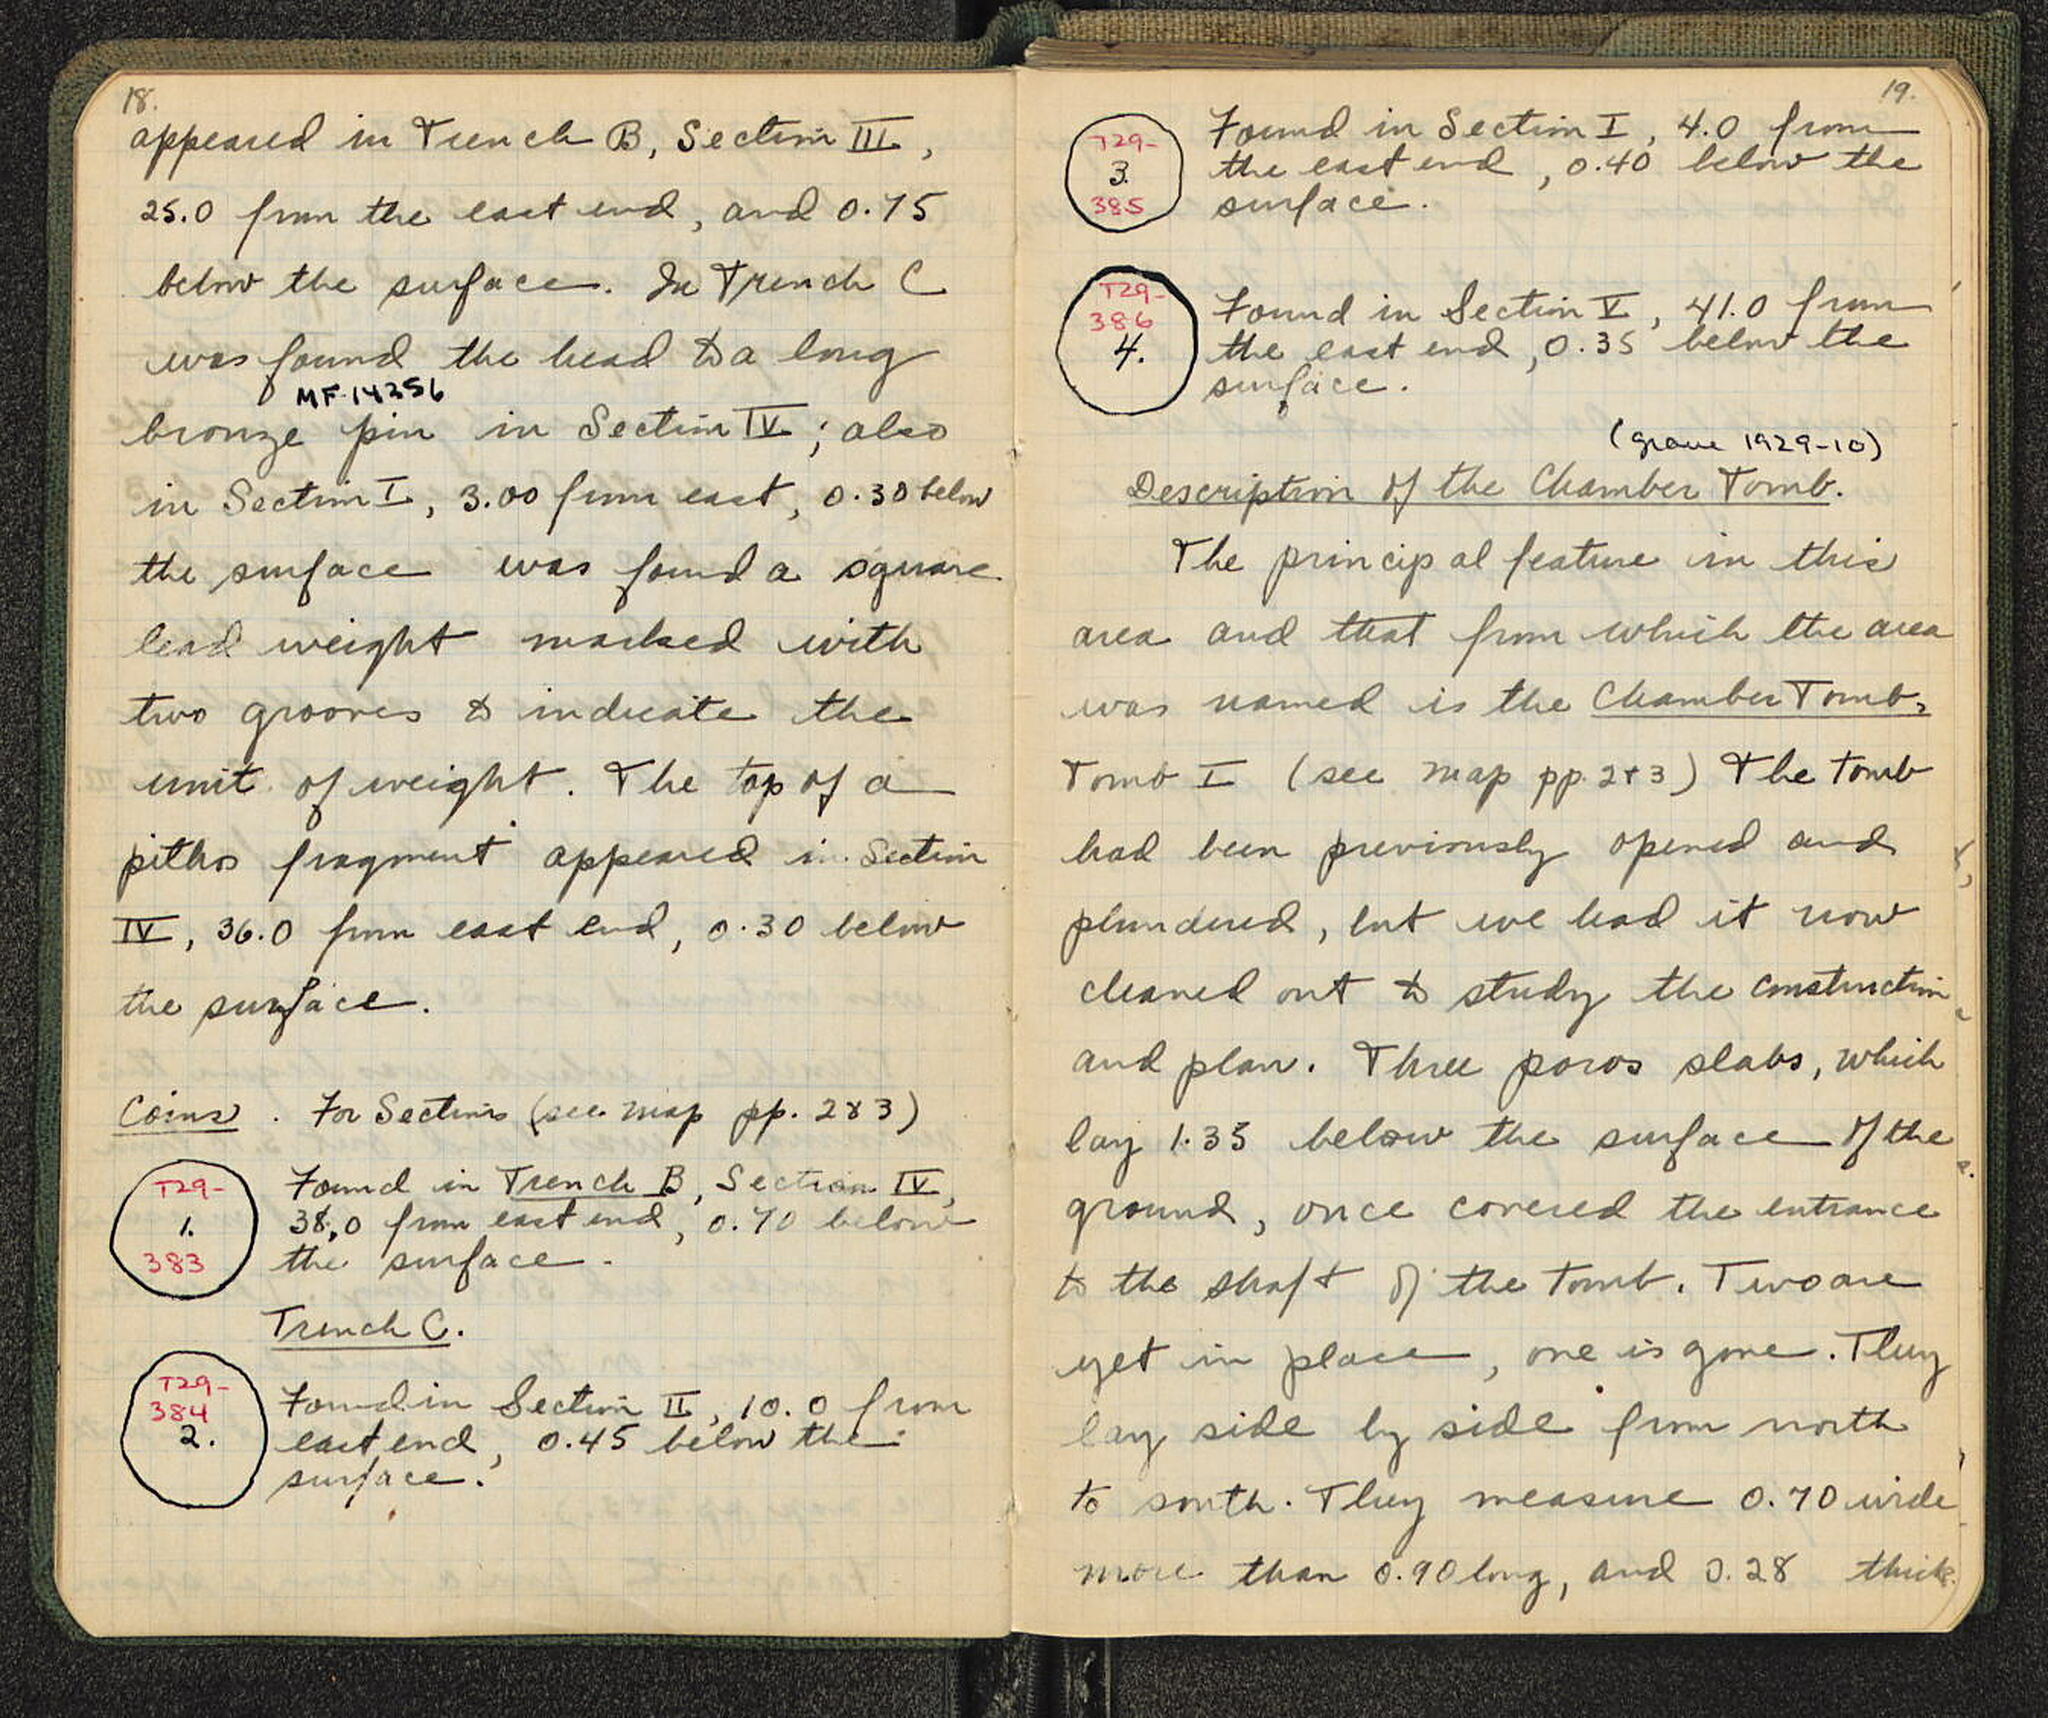 18.
appeared in Trench B, Section III,
25.0 from the east end, and 0.75
below the surface. In Trench C
was found the head to a long
MF-14356
bronze pin in Section IV; also
in Section I, 3.00 from east, 0.30 below
the surface was found a square
lead weight marked with
two grooves to indicate the
unit of weight. The top of a
pithos fragment appeared in Section
IV, 36.0 from east end, 0.30 below
the surface.
Coins. For Sections (see map pp. 2 & 3)
T29-
1.
383
Found in Trench B, Section IV,
38.0 from east end, 0.70 below
the surface.
Trench C.
T29-
384
2.
Found in Section II, 10.0 from
east end, 0.45 below the
surface.
19.
T29-
3.
385
Found in Section I, 4.0 from
the east end, 0.40 below the
surface.
T29-
386
4.
Found in Section V, 41.0 from
the east end, 0.35 below the
surface.
(grave 1929-10)
Description of the Chamber Tomb.
The principal feature in this
area and that from which the area
was named is the Chamber Tomb,
Tomb I (see map pp. 2 + 3) The tomb
had been previously opened and
plundered, but we had it now
cleaned out to study the construction
and plan. Three poros slabs, which
lay 1.35 below the surface of the
ground, once covered the entrance
to the shaft of the tomb. Two are
yet in place, one is gone. They
lay side by side from north
to south. They measure 0.70 wide
more than 0.90 long, and 0.28 thick.